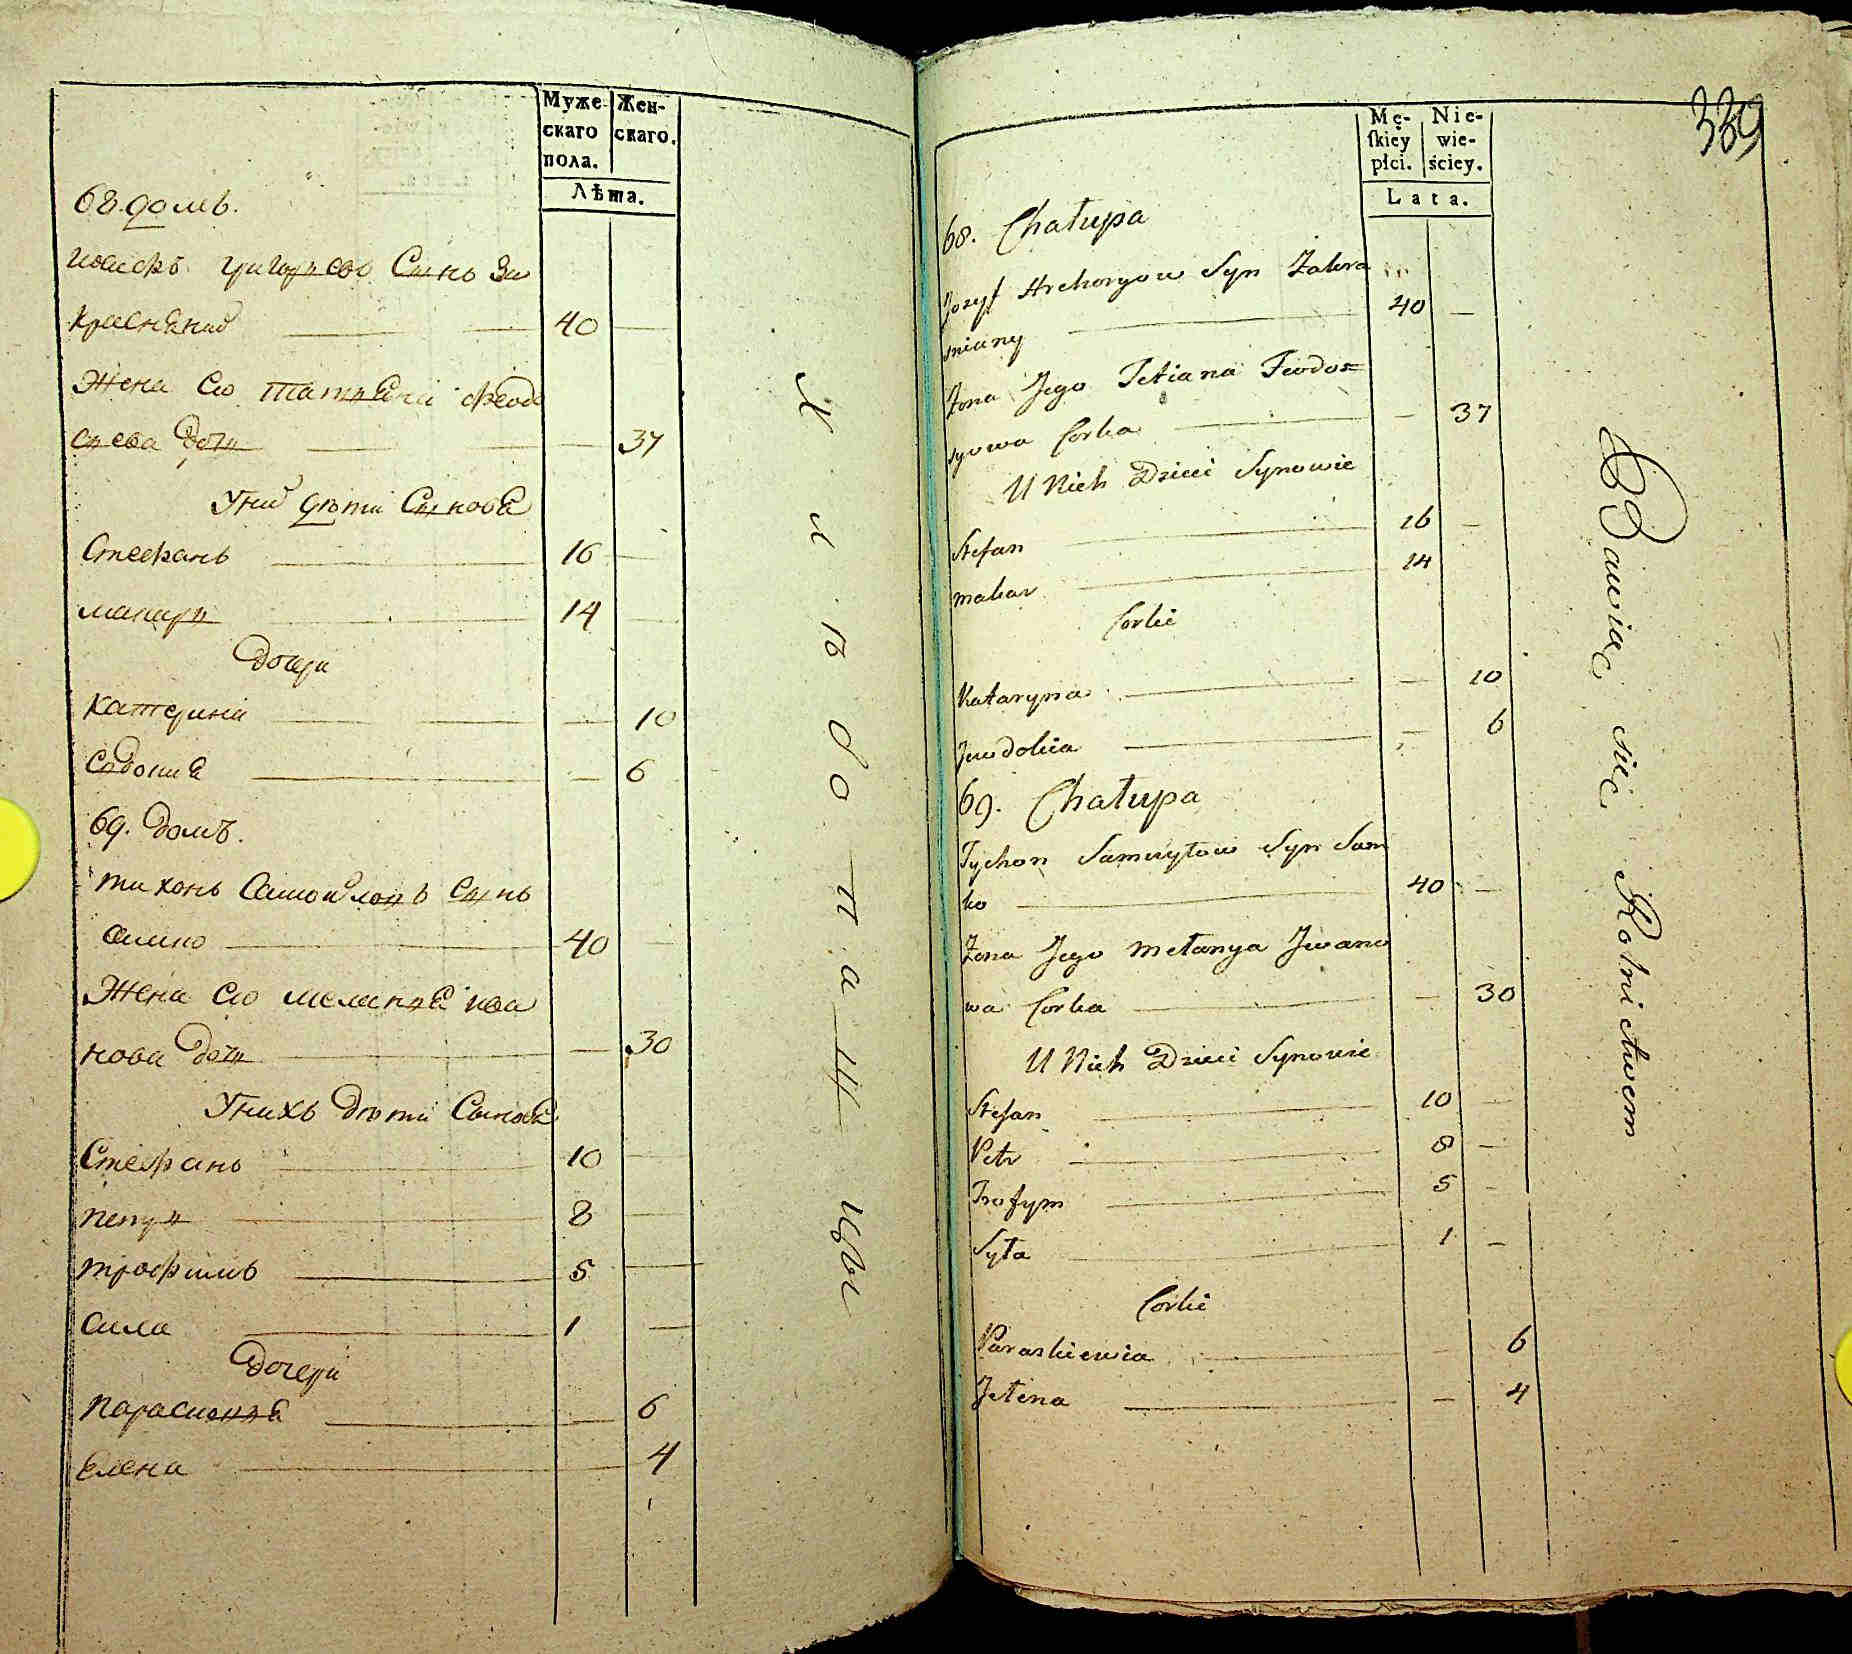 Муже- Жен-
скаго скаго.
пола.
Лѣта.
68. домъ.
Иосифъ Григорьевъ Сынъ За
краснѣний 40
Жена его татьяна феодо
сиева дочь 37
У них дѣти Сыновя
Стефанъ 16
макаръ 14
дочери
Катерина 10
Евдокия 6
69. домъ.
тихонъ Самойловъ Сынъ
Самко 40
Жена его меланья ива
нова дочь 30
У нихъ дѣти Сыновя
Стефанъ 10
петръ 8
трофимъ 5
Сила 1
дочери
Парасковья 6
Елена 4
Хлѣбопашцы
Mę- Nie-
ſkiey wie-
płci. ściey.
Lata.
339
68. Chałupa
Jozyf Hrehoryow Syn Zakra
sniany 40
Żona Jego Tetiana Feodos=
syowa Corka 37
U Nich Dzieci Synowie
Stefan 16
Makar 14
Corki
Kataryna 10
Jewdokia 6
69. Chałupa
Tychon Samuyłow Syn Sam
ko 40
Żona Jego Mełanya Jwano
wa Corka 30
U Nich Dzieci Synowie
Stefan 10
Petr 8
Trofym 5
Syła 1
Corki
Paraskiewia 6
Jełena 4
Bawiąc się Rolnictwem